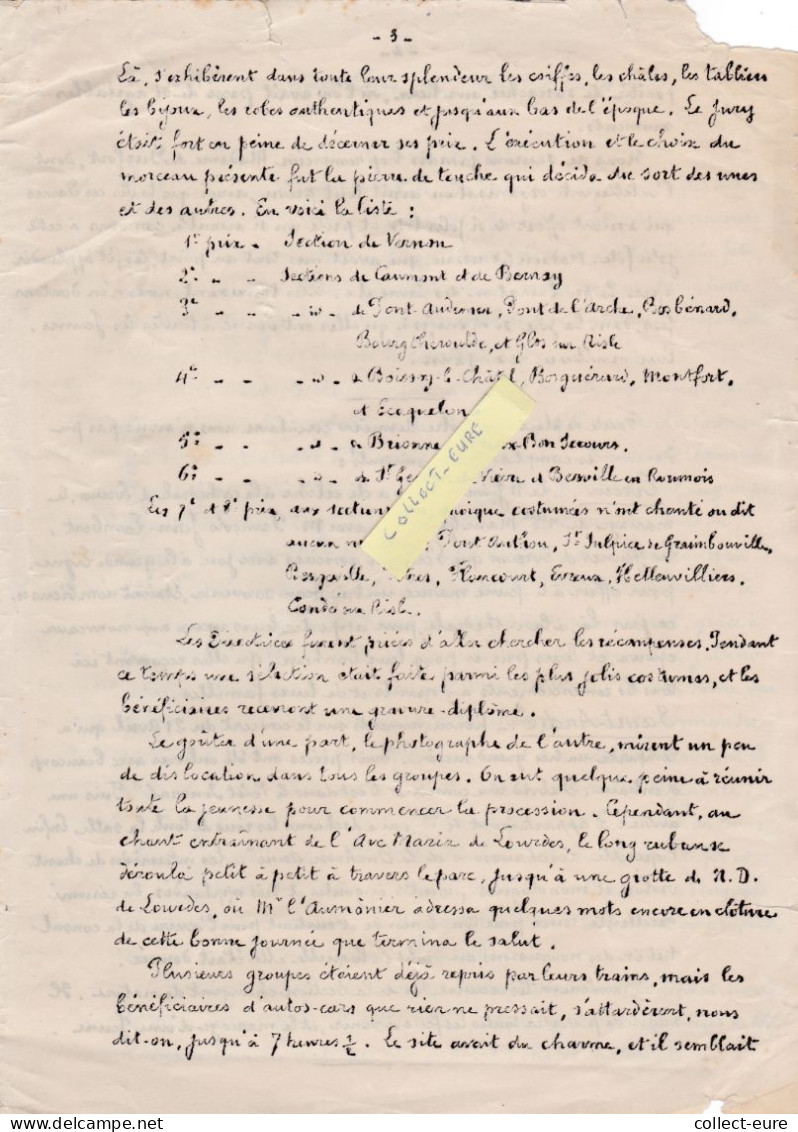 - 3 -
Là, s'exhibèrent dans toute leur splendeur les coiffes, les châles, les tabliers
les bijoux, les robes authentiques et jusqu'aux bas de l'époque. Le Jury
était fort en peine de décerner ses prix. L'exécution et le choix du
morceau présenté fut la pierre de touche qui décida du sort des unes
et des autres. En voici la liste :
1er prix - Section de Vernon
2e - - Sections de Caumont et de Bernay
3e - - -id- de Pont-Audemer, Pont de l'Arche, Bosbénard,
Bourgtheroulde, et Glos sur Risle
4e - - -id- de Boissy-le-Châtel, Bosguérard, Montfort,
et Ecaquelon
5e - - -id- de Brionne Bon Secours.
6e - - -id- de St Ge Lièvre et Berville en Roumois
Les 7e et 8e prix, aux sections quoique costumées n'ont chanté ou dit
aucun Pont Authou, St Sulpice de Graimbouville,
Harcourt, Evreux, Hellenvilliers,
Condé sur Risle.
Les Directrices furent priées d'aller chercher les récompenses. Pendant
ce temps une sélection était faite parmi les plus jolis costumes, et les
bénéficiaires reçurent une gravure-diplôme.
Le goûter d'une part, le photographe de l'autre, mirent un peu
de dislocation dans tous les groupes. On eut quelque peine à réunir
toute la jeunesse pour commencer la procession. Cependant, au
chant entraînant de l'Ave Maria de Lourdes, le long ruban se
déroula petit à petit à travers le parc, jusqu'à une grotte de N. D.
de Lourdes, où Mr l'Aumônier adressa quelques mots encore en clôture
de cette bonne journée que termina le salut.
Plusieurs groupes étaient déjà repris par leurs trains, mais les
bénéficiaires d'autos-cars que rien ne pressait, s'attardèrent, nous
dit-on, jusqu'à 7 heures ½. Le site avait du charme, et il semblait
COLLECT-EURE
delcampe.net
collect-eure